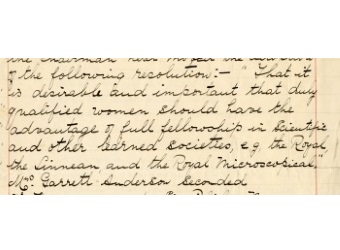 the Chairman
the following resolution:- "That it
is desirable and important that duly
qualified women should have the
advantage of full fellowship in Scientific
and other learned Societies, e.g. the Royal,
the Linnean, and the Royal Microscopical."
Mrs. Garrett Anderson seconded